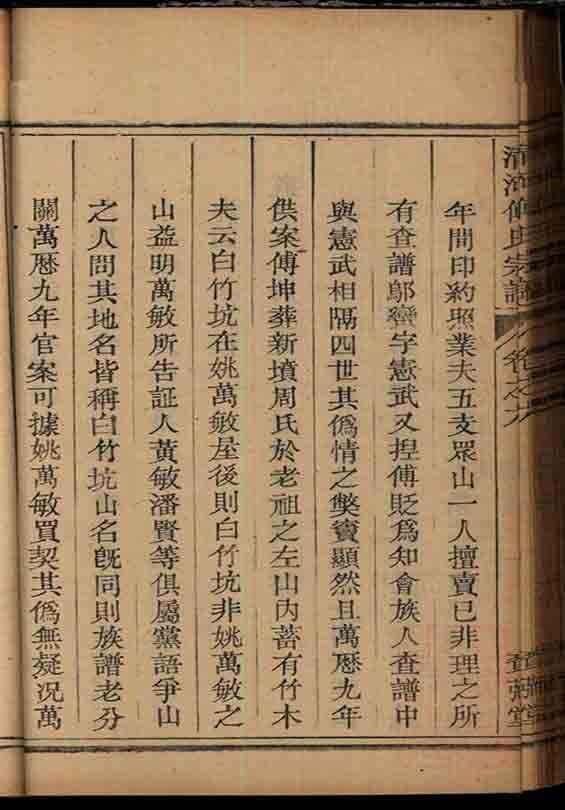 清河傅氏宗譜 卷之九
年間印約照業夫五支眾山一人擅賣已非理之所
有查譜鄔灣字憲武又揑傅貶為知會族人查譜中
與憲武相隔四世其僞情之獘竇顯然且萬曆九年
供案傅坤葬新墳周氏於老祖之左山內蓄有竹木
夫云白竹坑在姚萬敏屋後則白竹坑非姚萬敏之
山益明萬敏所告証人黃敏潘賢等俱屬黨語爭山
之人問其地名皆稱白竹坑山名旣同則族譜老分
關萬曆九年官案可據姚萬敏買契其僞無疑况萬